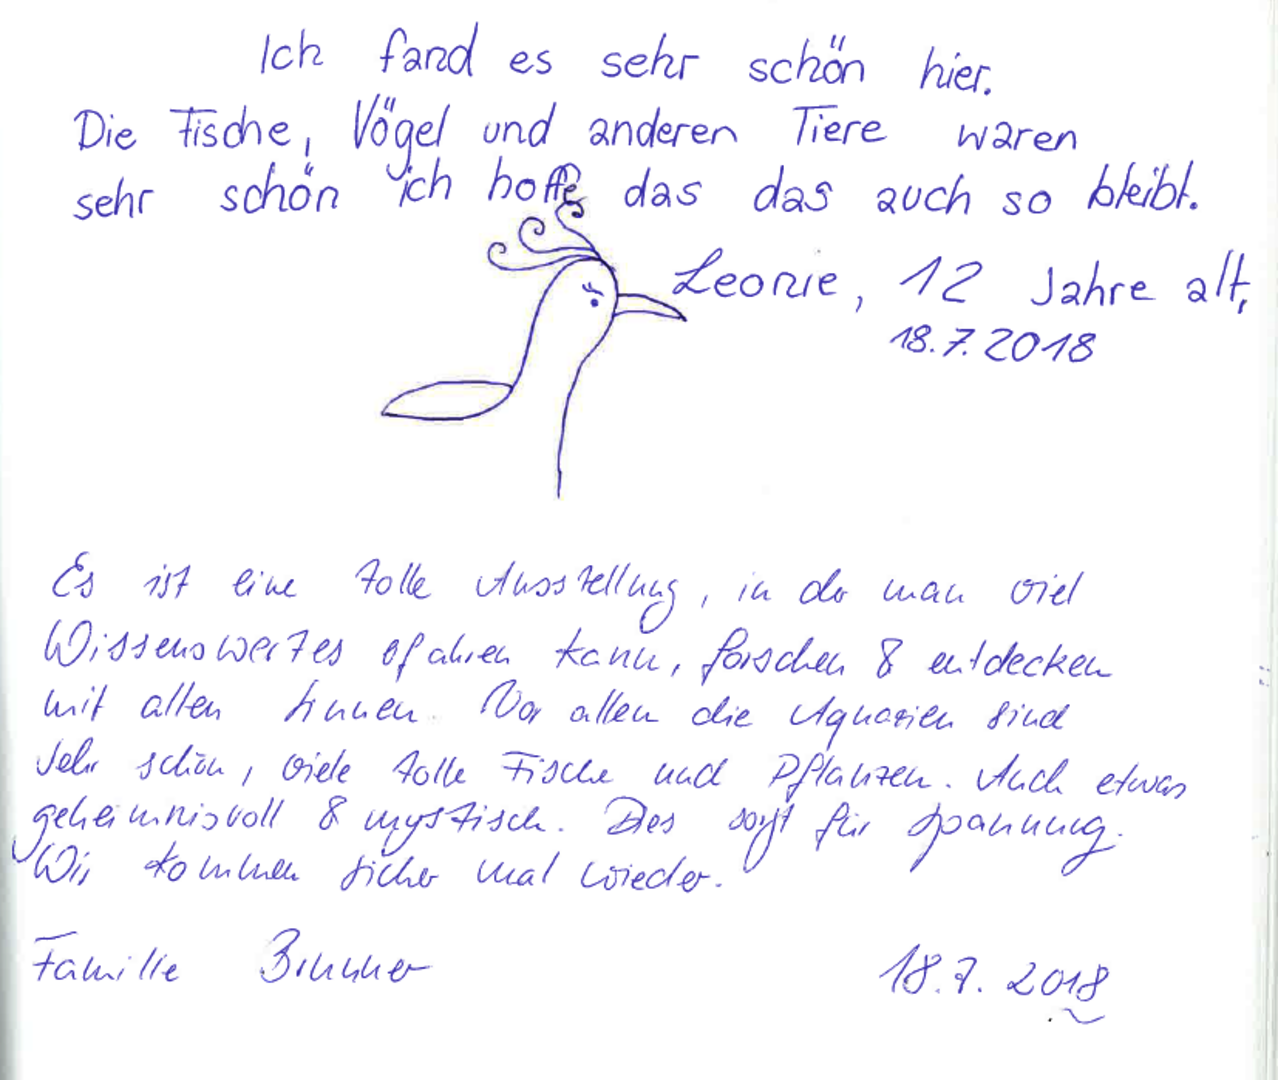 Ich fand es sehr schön hier.
Die Fische, Vögel und anderen Tiere waren
sehr schön ich hoffe das das auch so bleibt.
Leonie, 12 Jahre alt,
18.7.2018
Es ist eine tolle Ausstellung, in der man viel
Wissenswertes erfahren kann, forschen & entdecken
mit allen Sinnen. Vor allem die Aquarien sind
sehr schön, viele tolle Fische und Pflanzen. Auch etwas
geheimnisvoll & mystisch. Dies sorgt für Spannung.
Wir kommen sicher mal wieder.
Familie
18.7.2018